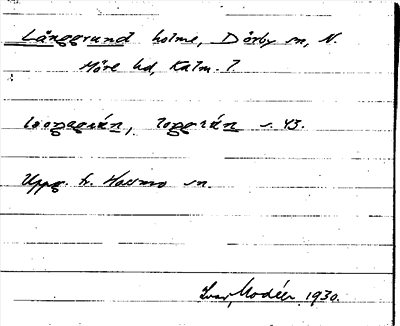 Långgrund holme, Dörby sn, N.
Möre hd, Kalm. l.
s. 43.
Uppg. fr. sn.
Ivar Modéer 1930.